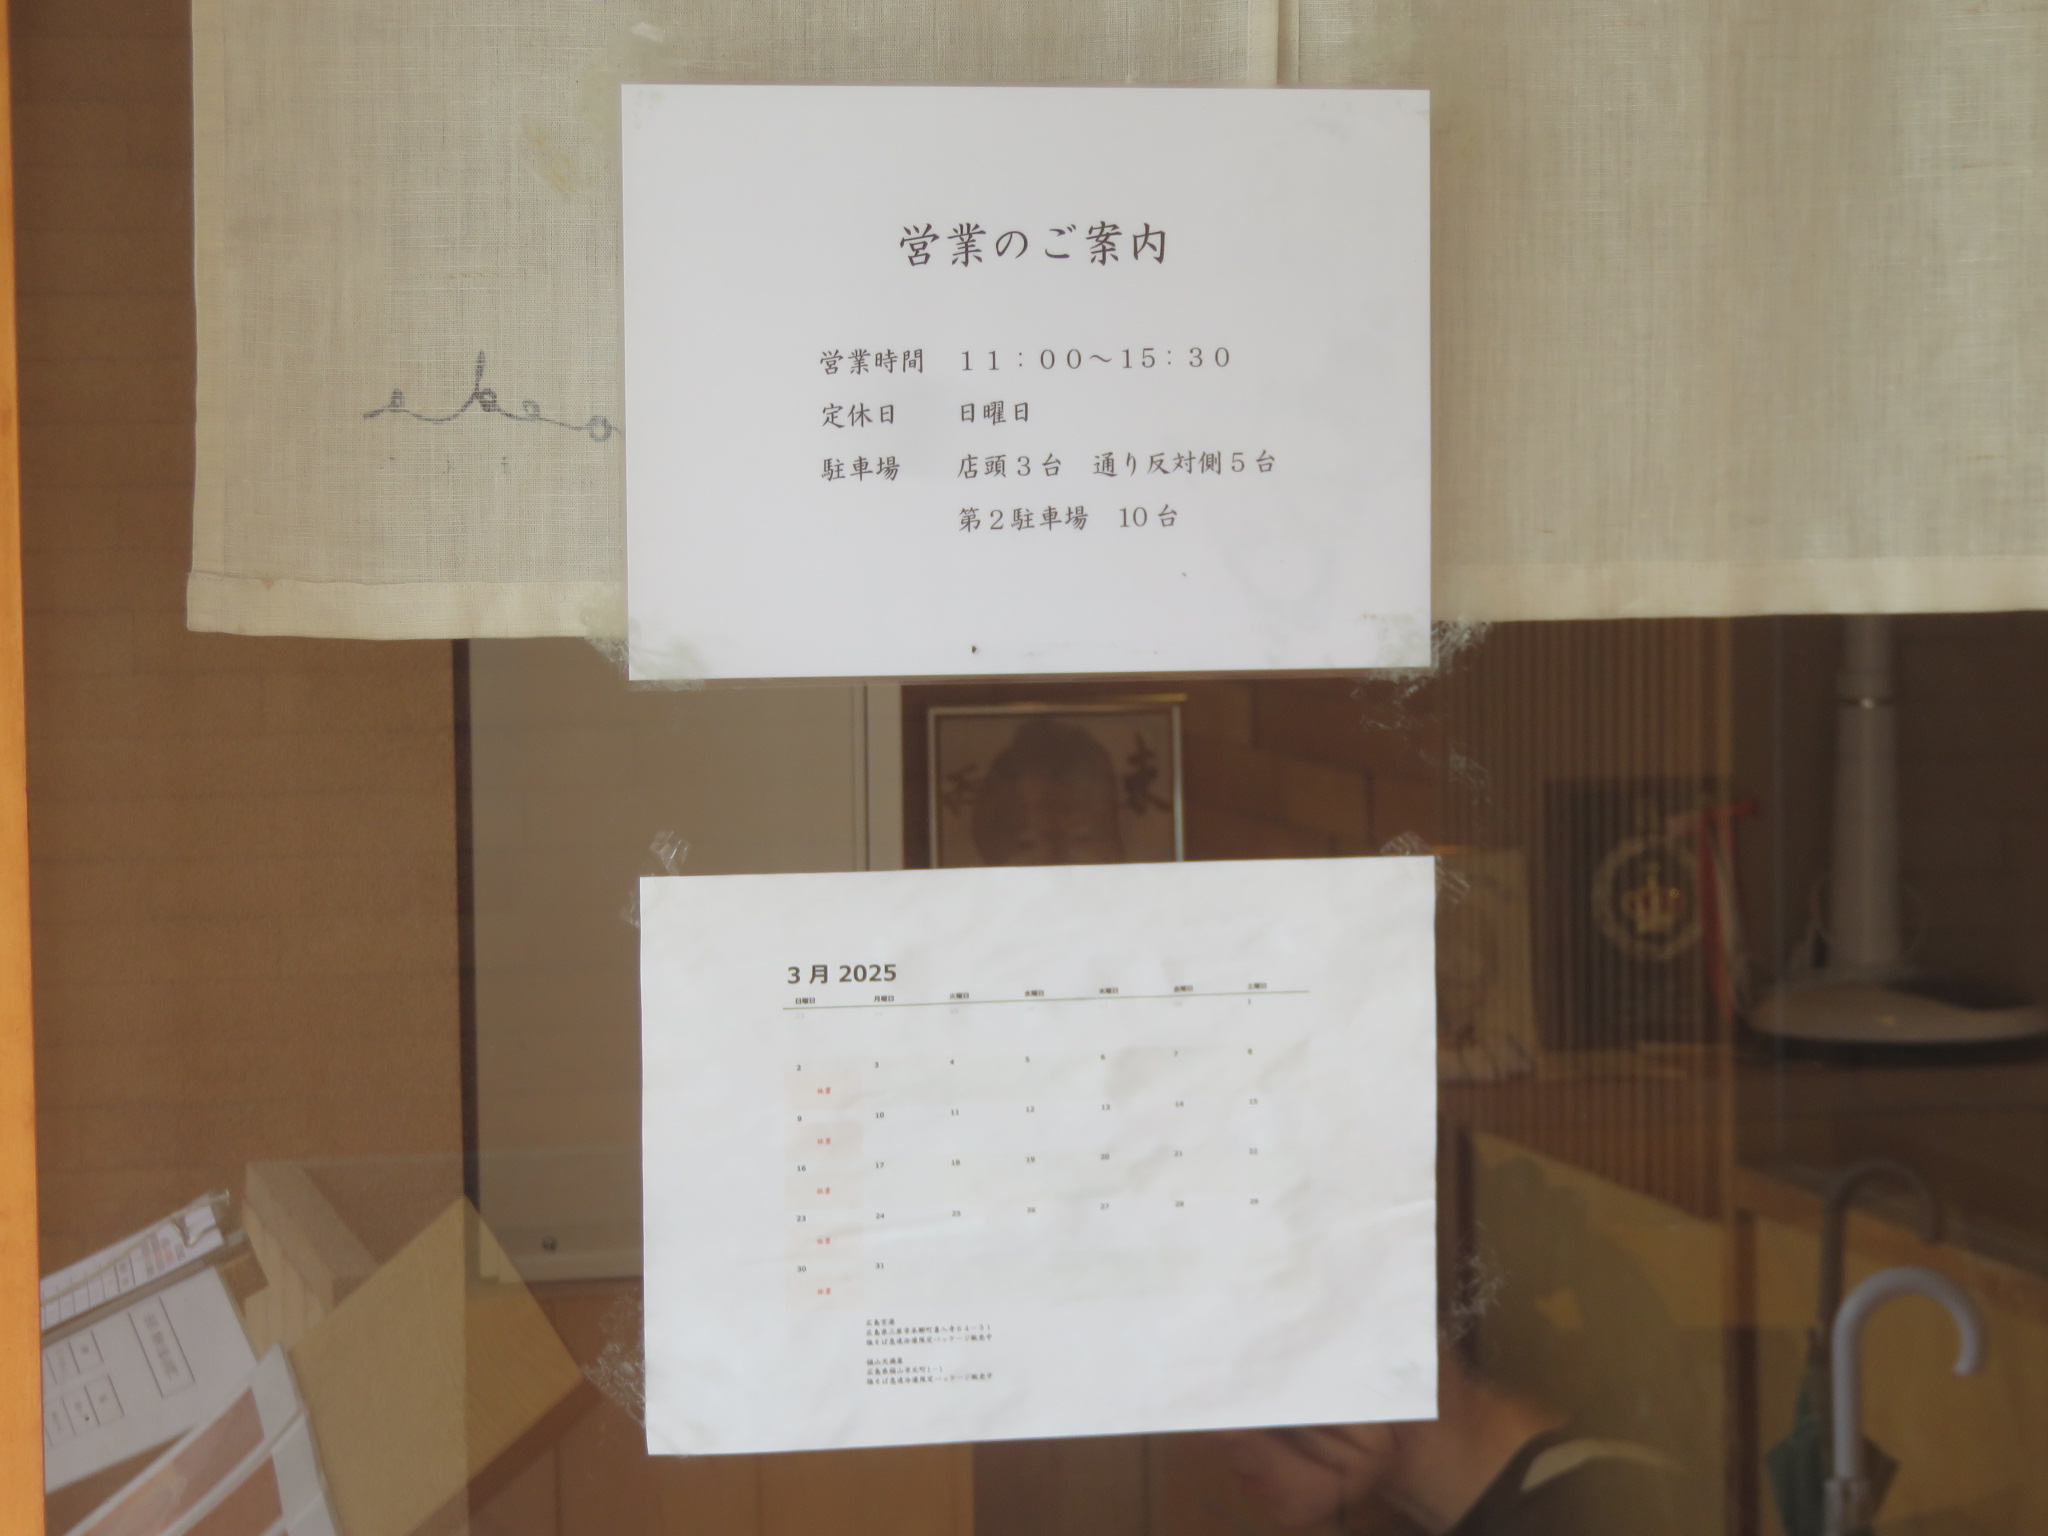 営業のご案内
営業時間　１１：００～15：３０
定休日　日曜日
駐車場　店頭３台　通り反対側５台
第２駐車場　10 台
3 月 2025
日曜日 月曜日 火曜日 水曜日 木曜日 金曜日 土曜日
1
2 3 4 5 6 7 8
休業
9 10 11 12 13 14 15
休業
16 17 18 19 20 21 22
休業
23 24 25 26 27 28 29
休業
30 31
休業
広島空港
福山天満屋
広島県福山市元町1－1